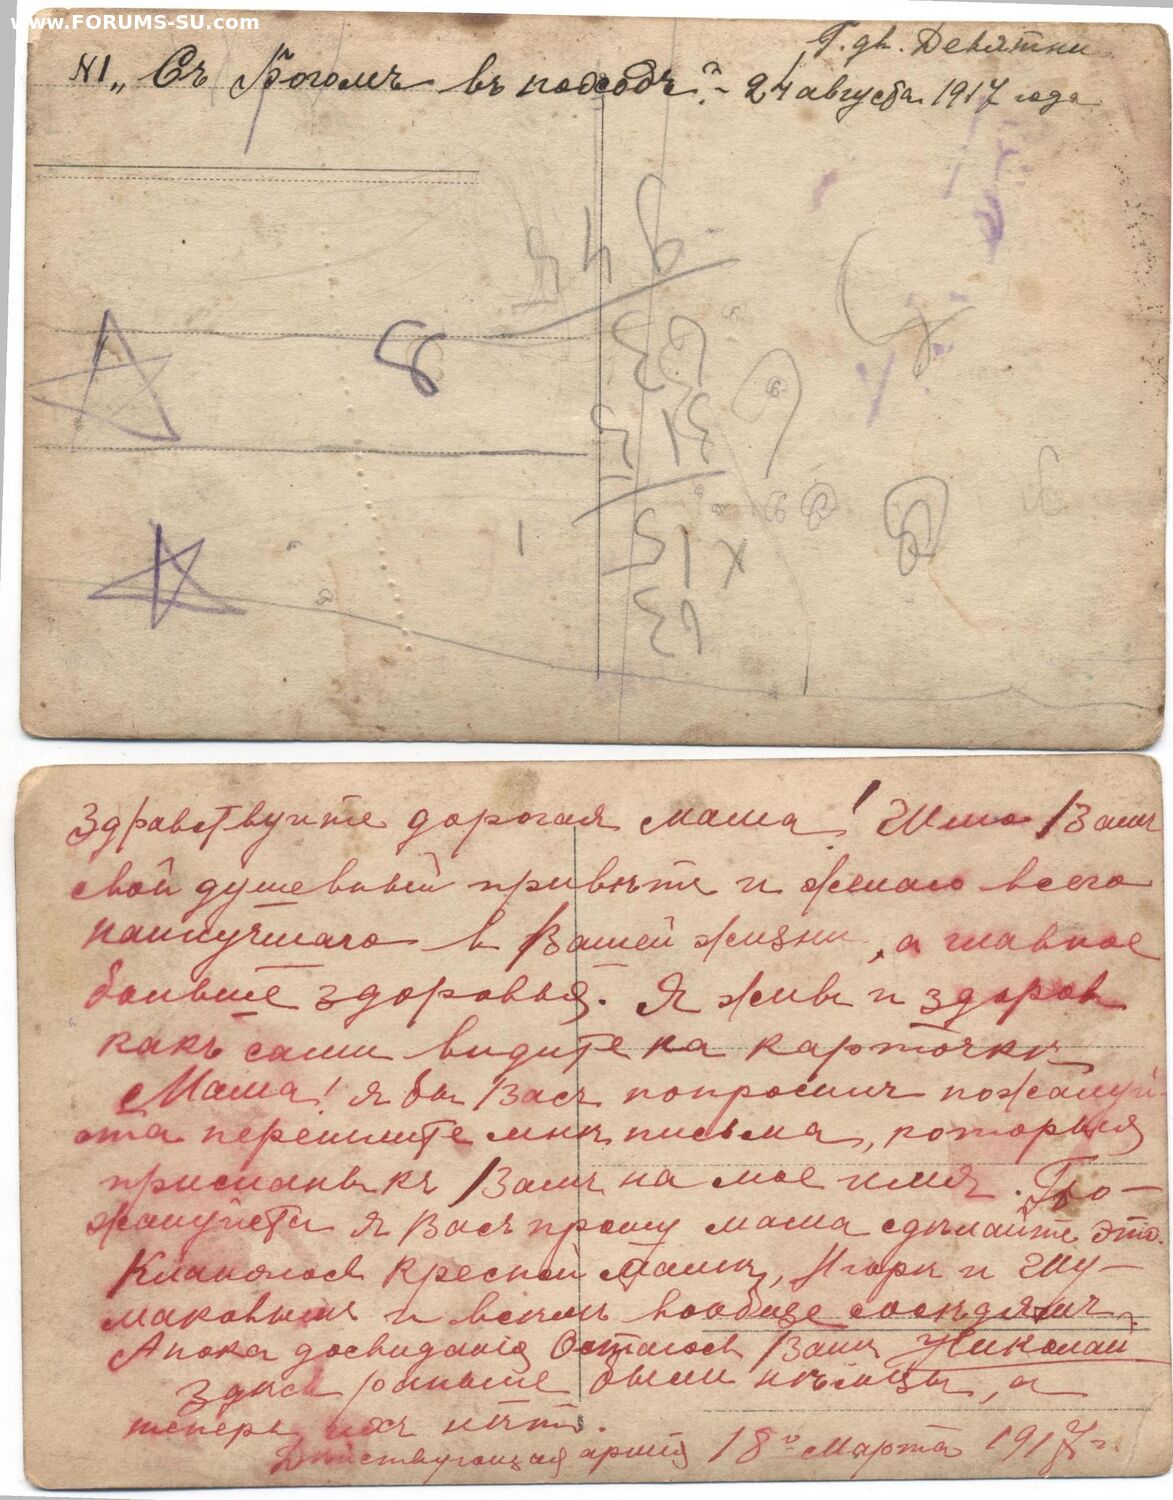 www.FORUMS-SU.com
Г. дв. Девятни
N1 „Съ Богомъ въ походъ"? – 24 августа 1917 года
8
94
63
315
15
x
63
Здравствуйте дорогая мама! Шлю Вамъ
свой душевный привѣтъ и желаю всего
наилучшаго в Вашей жизни, а главное
больше здоровья. Я живъ и здоров
какъ сами видите на карточкѣ
Мама! я бы Васъ попросилъ пожалуй-
ста перешлите мнѣ письма, которыя
присланы къ Вамъ на мое имя. По-
жалуйста я Васъ прошу мама сдѣлайте это.
Кланяюсь Крестной Мамѣ, Игорю и Шу-
маковымъ и всѣмъ вообще сосѣдямъ.
А пока досвиданія Остаюсь Вашъ Николай
Здѣсь раньше были нѣмцы, а
теперь ихъ нѣтъ.
Дѣйствующая армія 18го Марта 1917 г.